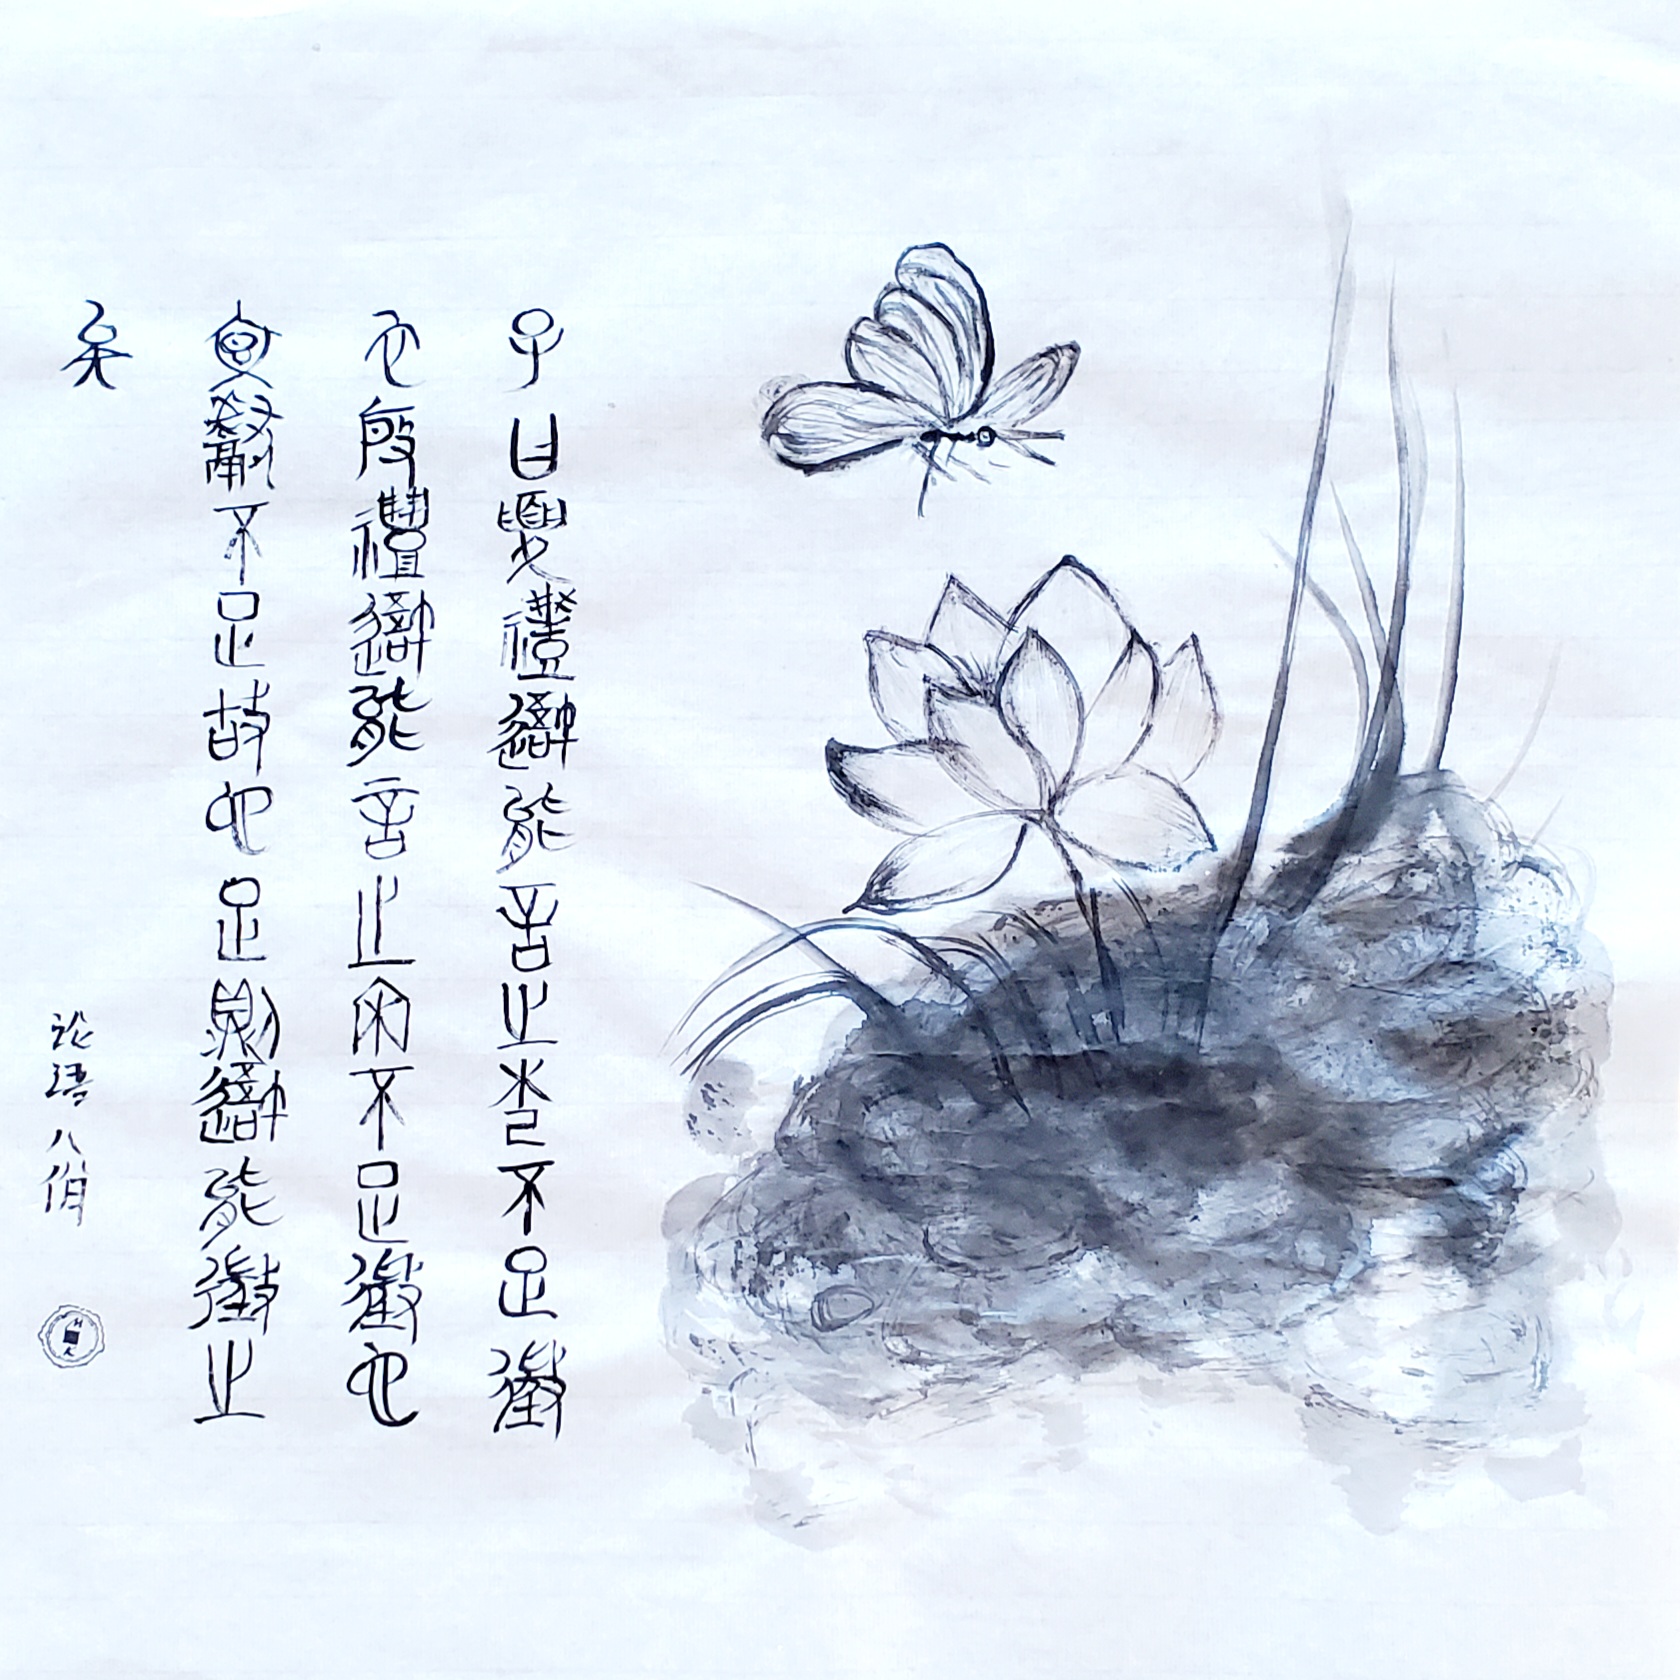 子曰夏禮吾能言之杞不足徵
也殷禮吾能言之宋不足徵也
文獻不足故也足則吾能徵之
矣
论语八佾